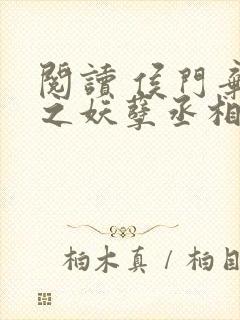 閱讀 侯門
之妖孽丞相
柏木真 / 柏目